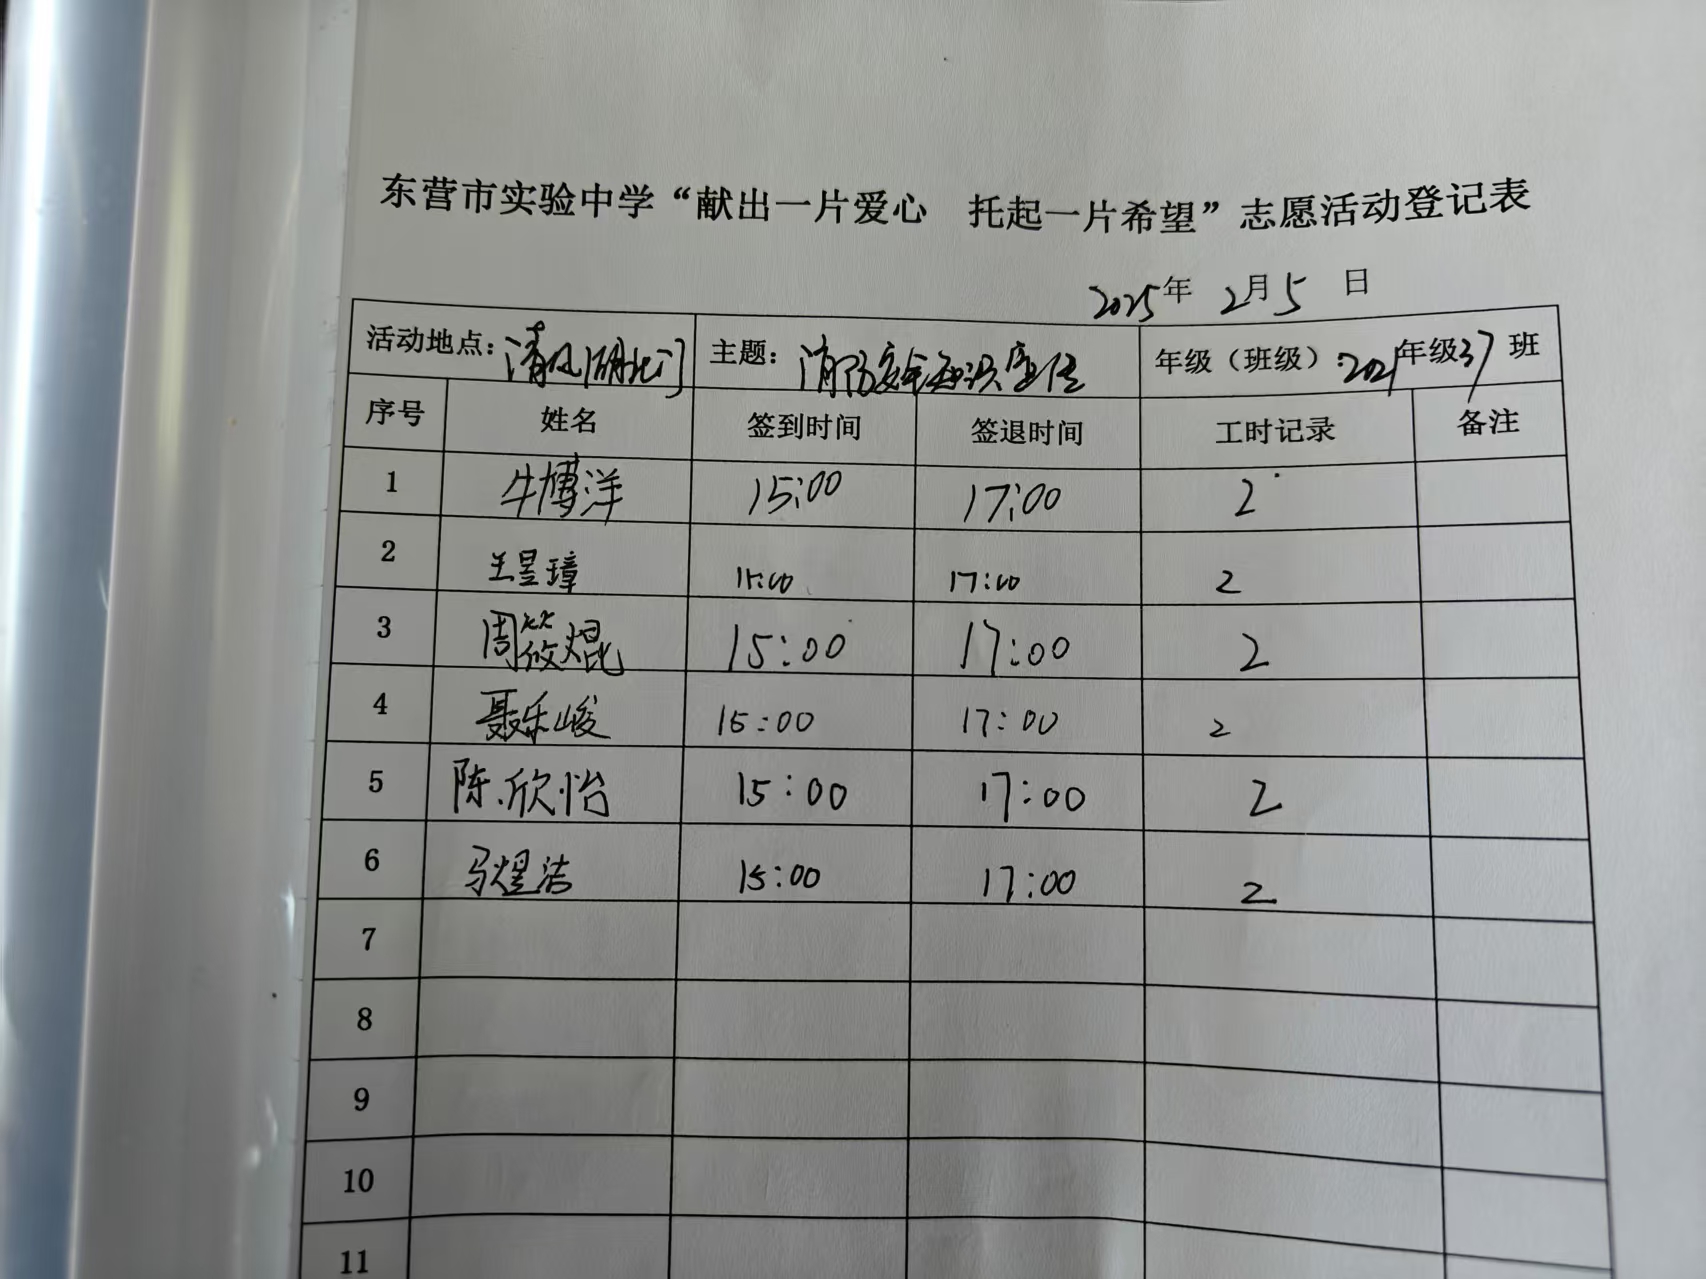 东营市实验中学“献出一片爱心 托起一片希望”志愿活动登记表
2025年 2月5 日
活动地点：清风湖北门 主题：消防安全知识宣传 年级（班级）：2021年级37班
序号 姓名 签到时间 签退时间 工时记录 备注
1 牛博洋 15:00 17:00 2
2 王昱璋 15:00 17:00 2
3 周筱焜 15:00 17:00 2
4 聂乐峻 15:00 17:00 2
5 陈欣怡 15:00 17:00 2
6 马煜洁 15:00 17:00 2
7
8
9
10
11